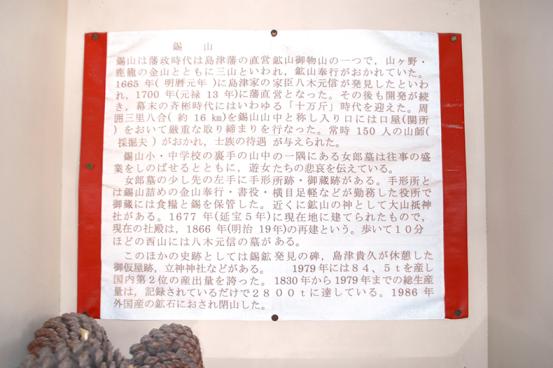 錫山
錫山は藩政時代は島津藩の直営鉱山御物山の一つで，山ヶ野・
鹿籠の金山とともに三山といわれ，鉱山奉行がおかれていた。
1665年(明暦元年)に島津家の家臣八木元信が発見したといわ
れ，1700年(元禄13年)に藩直営となった。その後も開発が続
き，幕末の斉彬時代にはいわゆる「十万斤」時代を迎えた。周
囲三里八合(約16㎞)を錫山山中と称し入り口には口屋(関所
)をおいて厳重な取り締まりを行なった。常時150人の山師(
採掘夫)がおかれ，士族の待遇が与えられた。
錫山小・中学校の裏手の山中の一隅にある女郎墓は往事の盛
業をしのばせるとともに，遊女たちの悲哀を伝えている。
女郎墓の少し先の左手に手形所跡・御蔵跡がある。手形所と
は錫山詰めの金山奉行・書役・横目足軽などが勤務した役所で
御蔵には食糧と錫を保管した。近くに鉱山の神として大山祇神
社がある。1677年(延宝5年)に現在地に建てられたもので，
現在の社殿は，1866年(明治19年)の再建という。歩いて10分
ほどの西山には八木元信の墓がある。
このほかの史跡としては錫鉱発見の碑，島津貴久が休憩した
御仮屋跡，立神神社などがある。 1979年には84，5tを産し
国内第2位の産出量を誇った。1830年から1979年までの総生産
量は，記録されているだけで2800tに達している。1986年
外国産の鉱石におされ閉山した。